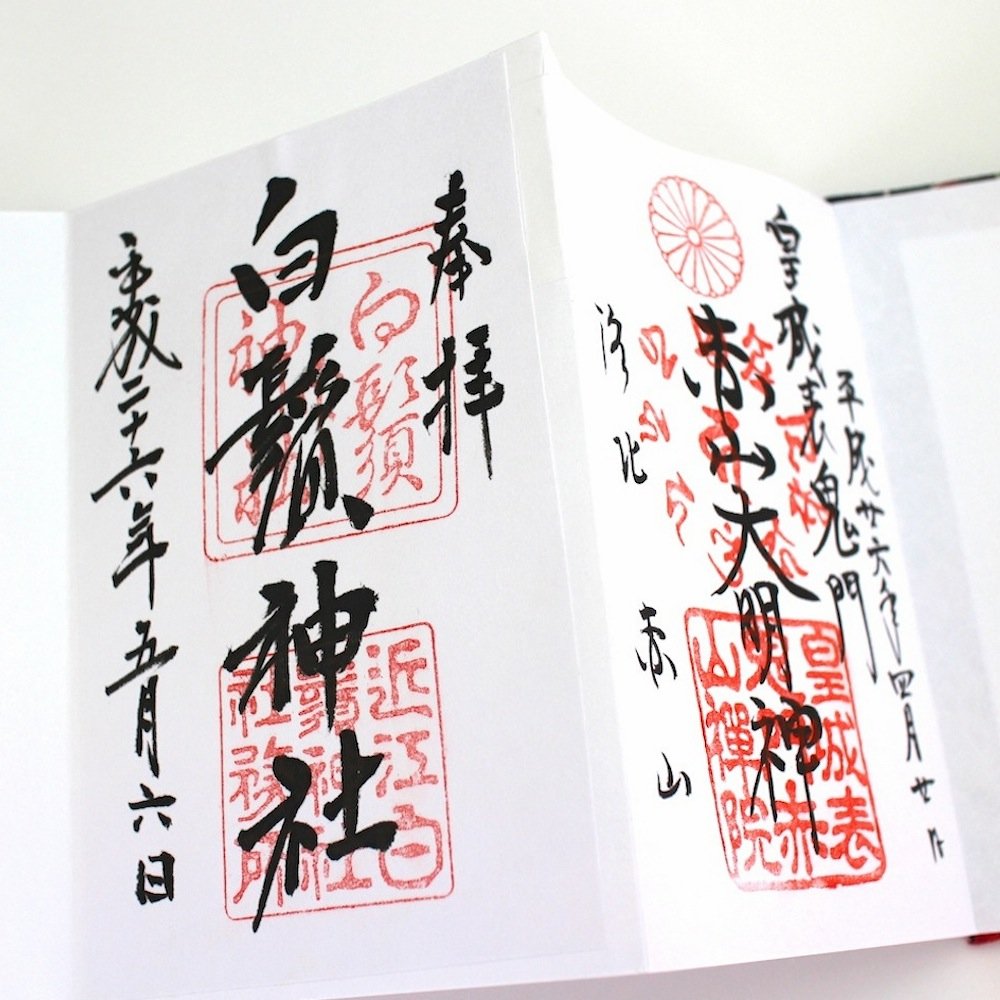 平成廿六年四月廿日
皇城表鬼門
赤山大明神
洛北 赤山
皇城表
鬼門赤
山禪院
奉拝
白鬚神社
平成二十六年五月六日
白鬚
神社
近江白
鬚神社
社務所